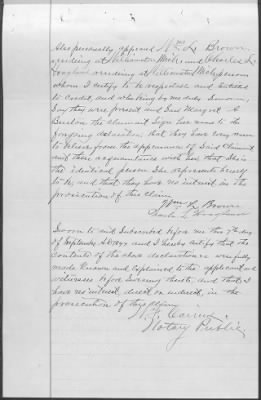 Also personally appeared Wm L. Brown,
residing at Kalamazoo Mich; and Charles L.
residing at Kalamazoo Mich persons
whom I certify to be respectable and entitled
to credit, and who being by me duly sworn,
say they were present and saw Margaret A.
the claimant sign her name to the
foregoing declaration; that they have every reason
to believe from the appearance of said claimant
and their acquaintance with her that she is
the identical person she represents herself
to be and that they have no interest in the
prosecution of this claim
Wm L. Brown
Charles L.
Sworn to and subscribed before me this 7th day
of September A.D. and I hereby certify that the
contents of the above declaration &c were fully
made known and explained to the applicant and
witnesses before swearing thereto, and that I
have no interest, direct or indirect, in the
prosecution of this claim
Notary Public